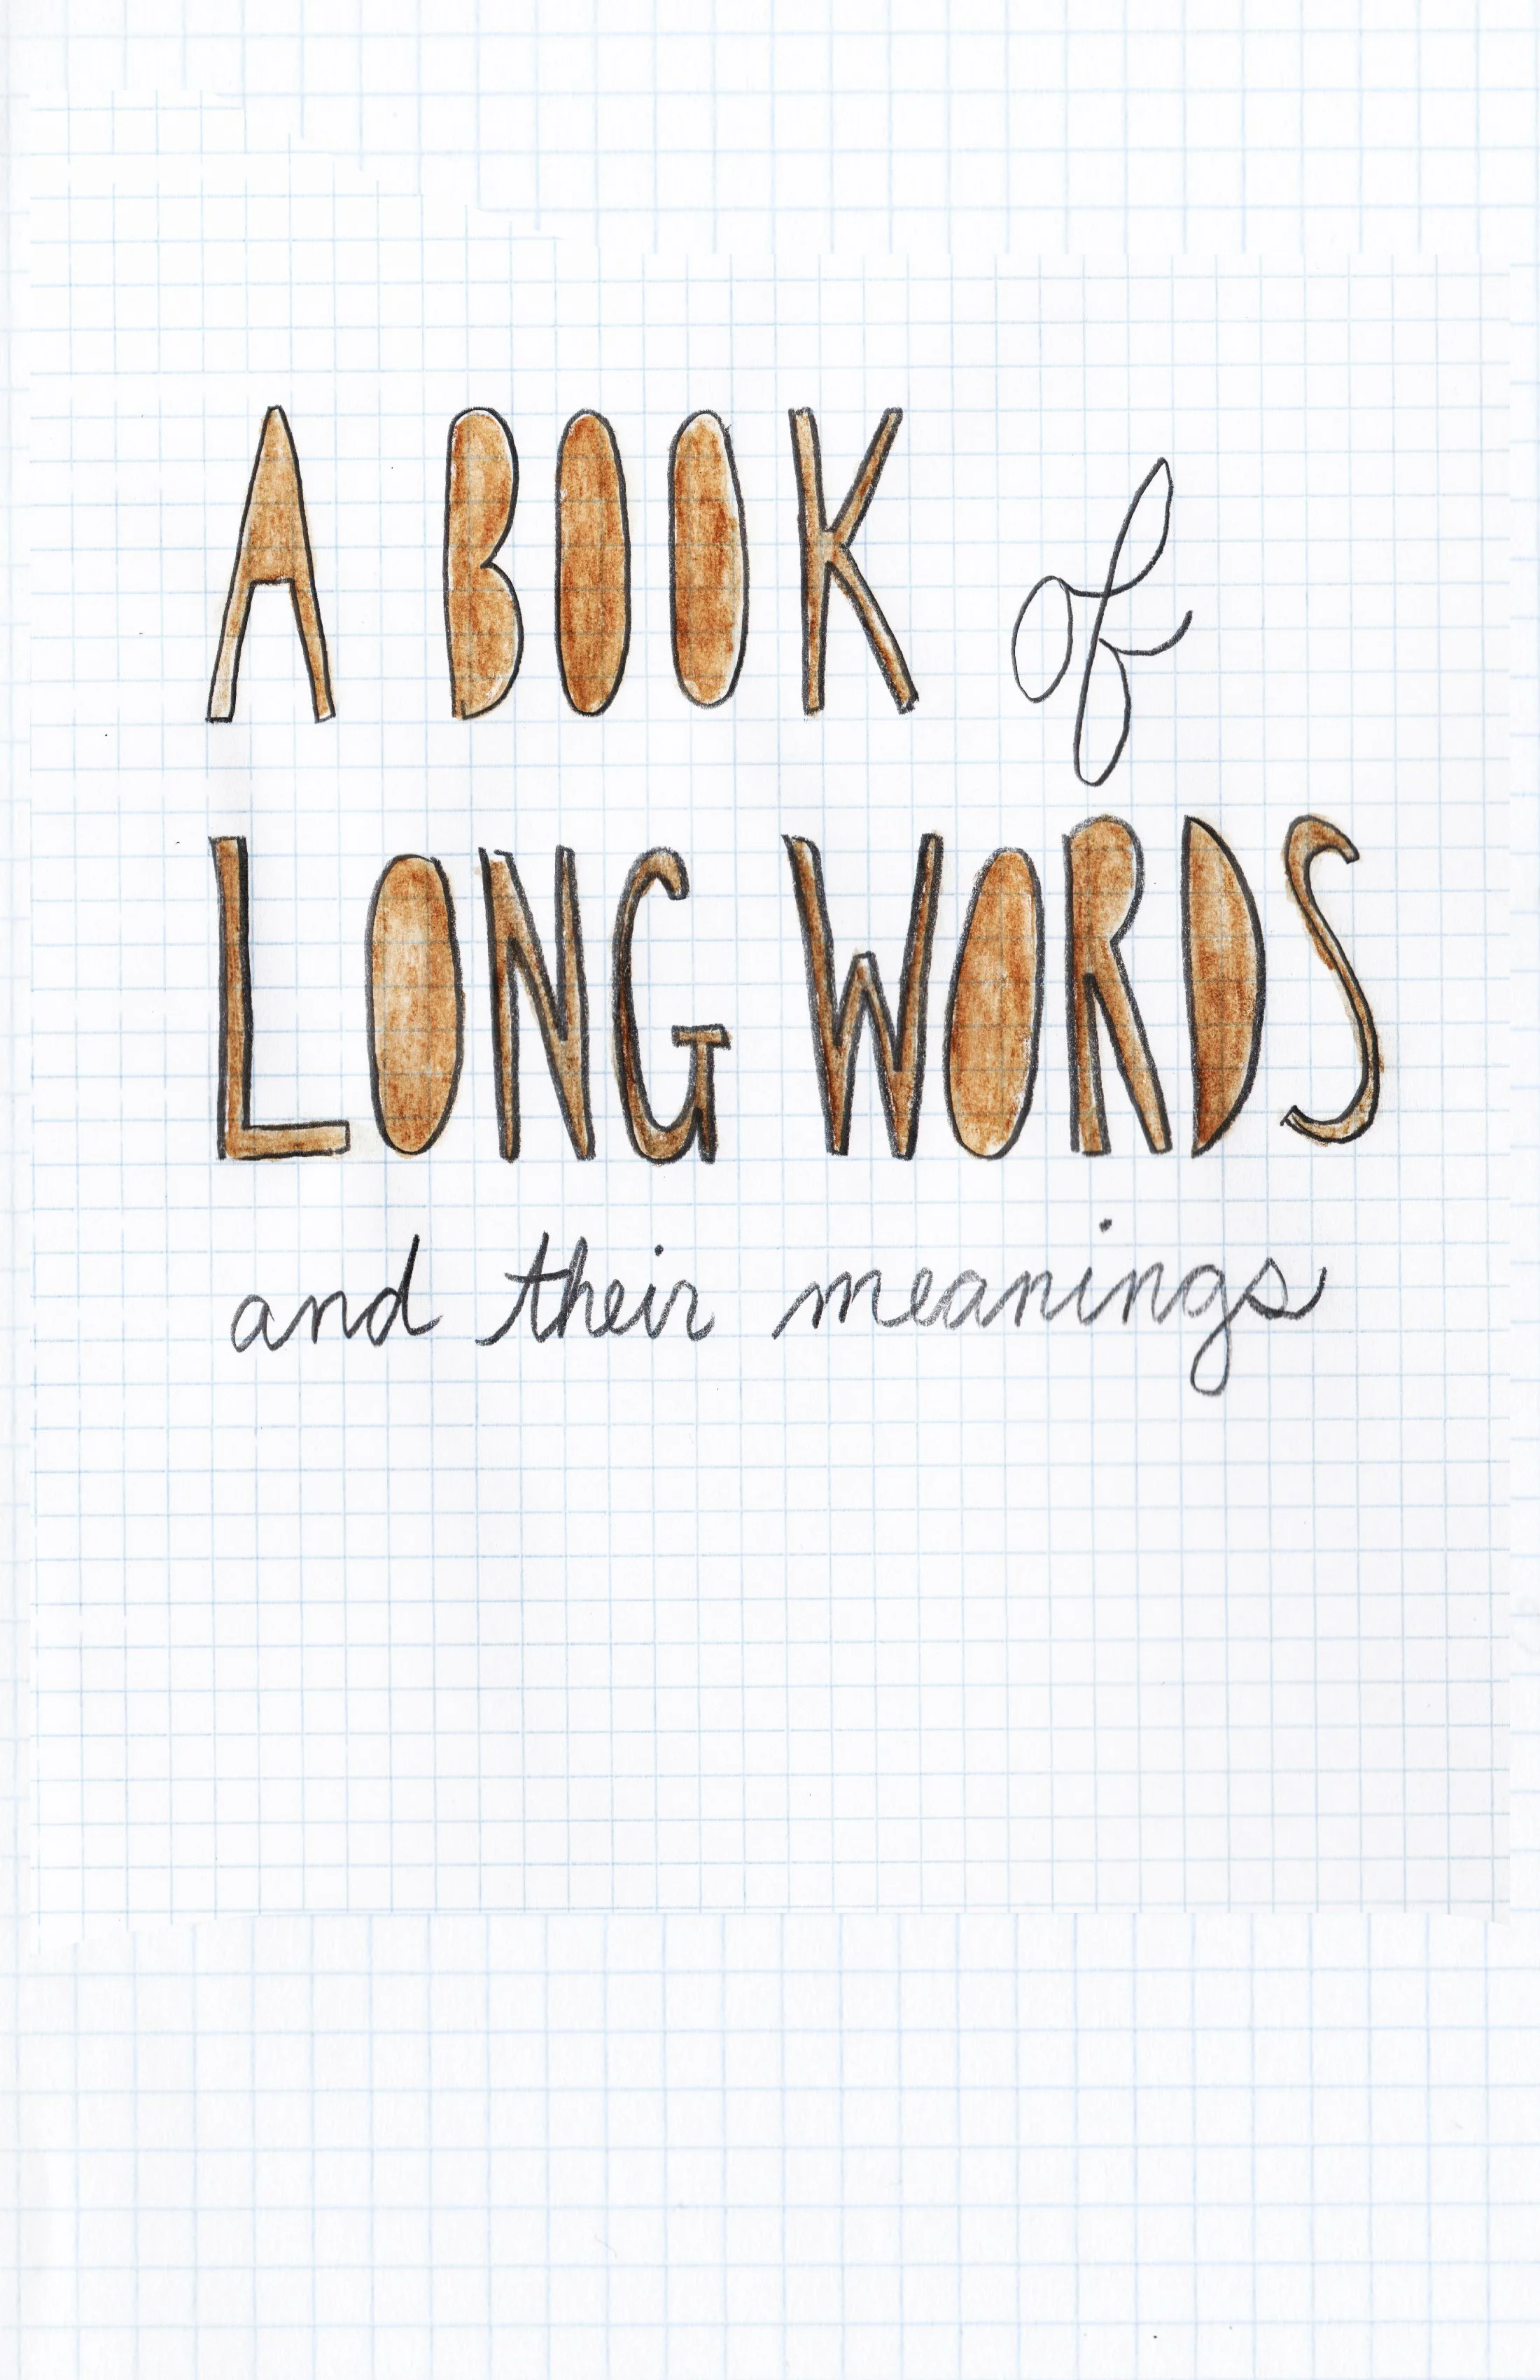 A BOOK of
LONG WORDS
and their meanings